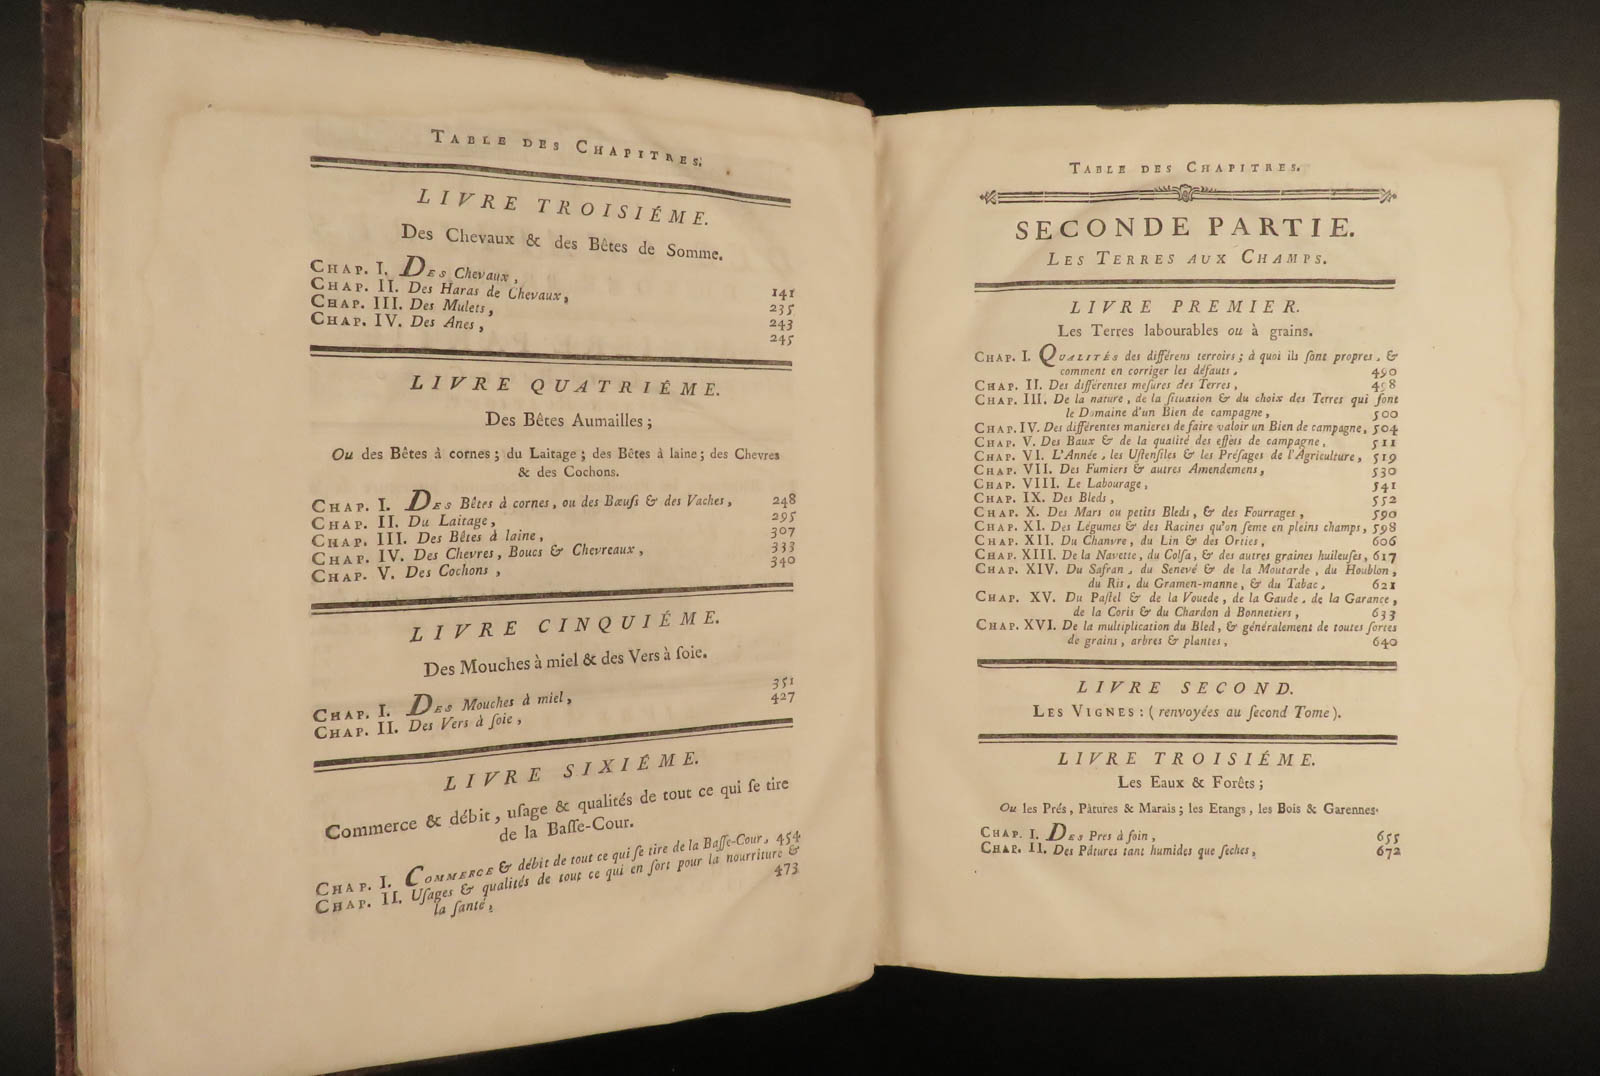 TABLE DES CHAPITRES.
LIVRE TROISIÉME.
Des Chevaux & des Bêtes de Somme.
CHAP. I. DES Chevaux, 141
CHAP. II. Des Haras de Chevaux, 235
CHAP. III. Des Mulets, 243
CHAP. IV. Des Anes, 245
LIVRE QUATRIÉME.
Des Bêtes Aumailles;
Ou des Bêtes à cornes; du Laitage; des Bêtes à laine; des Chevres
& des Cochons.
CHAP. I. DES Bêtes à cornes, ou des Bœufs & des Vaches, 248
CHAP. II. Du Laitage, 295
CHAP. III. Des Bêtes à laine, 307
CHAP. IV. Des Chevres, Boucs & Chevreaux, 333
CHAP. V. Des Cochons, 340
LIVRE CINQUIÉME.
Des Mouches à miel & des Vers à ſoie.
CHAP. I. DES Mouches à miel, 351
CHAP. II. Des Vers à ſoie, 427
LIVRE SIXIÉME.
Commerce & débit, uſage & qualités de tout ce qui ſe tire
de la Baſſe-Cour.
CHAP. I. COMMERCE & débit de tout ce qui ſe tire de la Baſſe-Cour, 454
CHAP. II. Uſages & qualités de tout ce qui en ſort pour la nourriture &
la ſanté, 473
TABLE DES CHAPITRES.
SECONDE PARTIE.
LES TERRES AUX CHAMPS.
LIVRE PREMIER.
Les Terres labourables ou à grains.
CHAP. I. QUALITÉS des différens terroirs; à quoi ils ſont propres, &
comment en corriger les défauts, 490
CHAP. II. Des différentes meſures des Terres, 498
CHAP. III. De la nature, de la ſituation & du choix des Terres qui ſont
le Domaine d'un Bien de campagne, 500
CHAP. IV. Des différentes manieres de faire valoir un Bien de campagne, 504
CHAP. V. Des Baux & de la qualité des effets de campagne, 511
CHAP. VI. L'Année, les Uſtenſiles & les Préſages de l'Agriculture, 519
CHAP. VII. Des Fumiers & autres Amendemens, 530
CHAP. VIII. Le Labourage, 541
CHAP. IX. Des Bleds, 552
CHAP. X. Des Mars ou petits Bleds, & des Fourrages, 590
CHAP. XI. Des Légumes & des Racines qu'on ſeme en pleins champs, 598
CHAP. XII. Du Chanvre, du Lin & des Orties, 606
CHAP. XIII. De la Navette, du Colſa, & des autres graines huileuſes, 617
CHAP. XIV. Du Safran, du Senevé & de la Moutarde, du Houblon,
du Ris, du Gramen-manne, & du Tabac, 621
CHAP. XV. Du Paſtel & de la Vouede, de la Gaude, de la Garance,
de la Coris & du Chardon à Bonnetiers, 633
CHAP. XVI. De la multiplication du Bled, & généralement de toutes ſortes
de grains, arbres & plantes, 640
LIVRE SECOND.
LES VIGNES: (renvoyées au ſecond Tome).
LIVRE TROISIÉME.
Les Eaux & Forêts;
Ou les Prés, Pâtures & Marais; les Etangs, les Bois & Garennes.
CHAP. I. DES Pres à foin, 655
CHAP. II. Des Pâtures tant humides que ſeches, 672